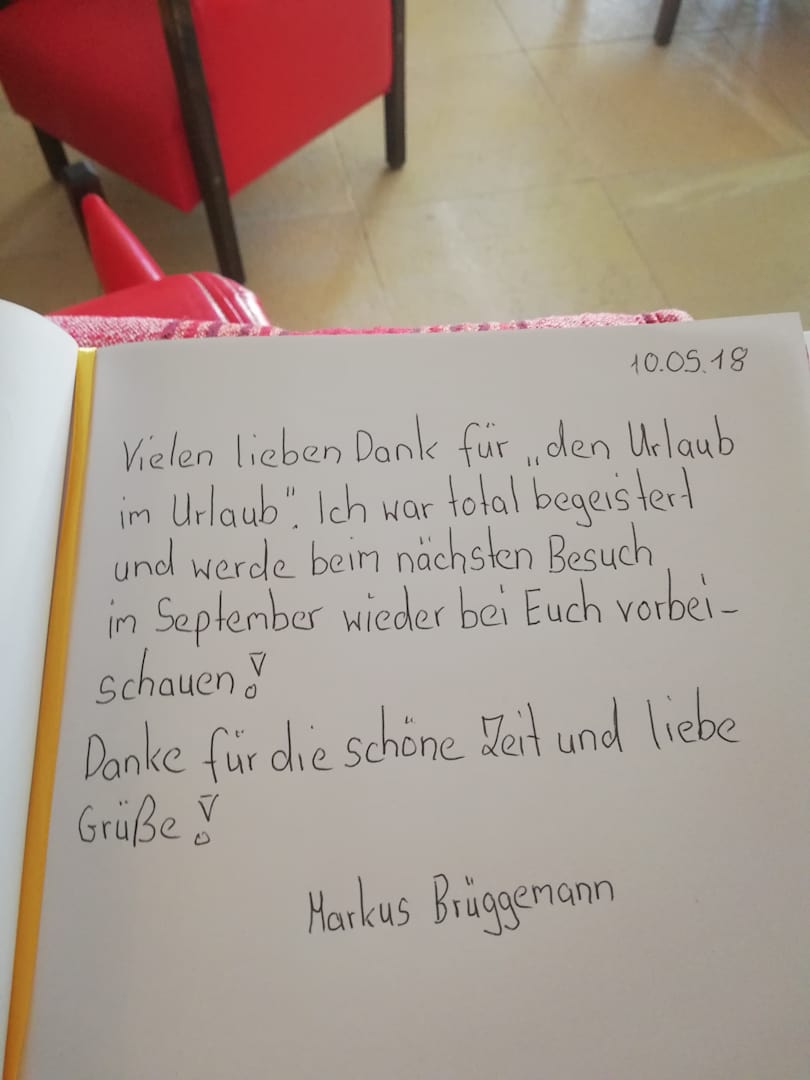 10.05.18
Vielen lieben Dank für „den Urlaub
im Urlaub". Ich war total begeistert
und werde beim nächsten Besuch
im September wieder bei Euch vorbei-
schauen!
Danke für die schöne Zeit und liebe
Grüße!
Markus Brüggemann